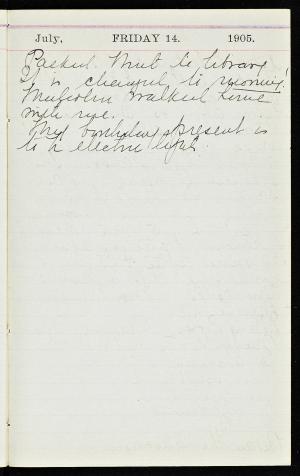 July, FRIDAY 14. 1905.
Packed. Went to library
It is changed to morning!
Malcolm walked home
with me.
My birthday present is
to be electric light.